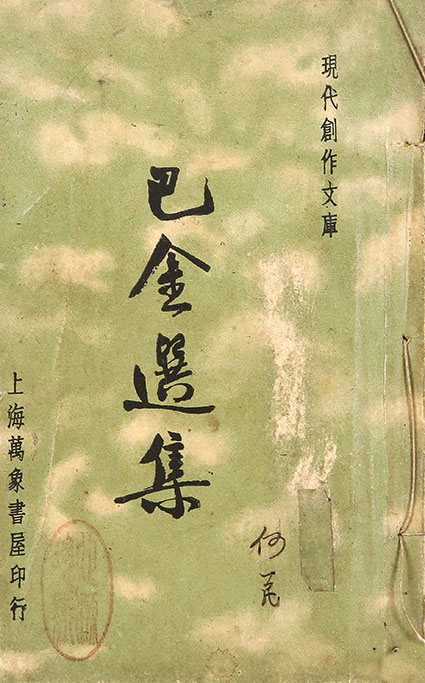 現代創作文庫
巴金選集
上海萬象書屋印行